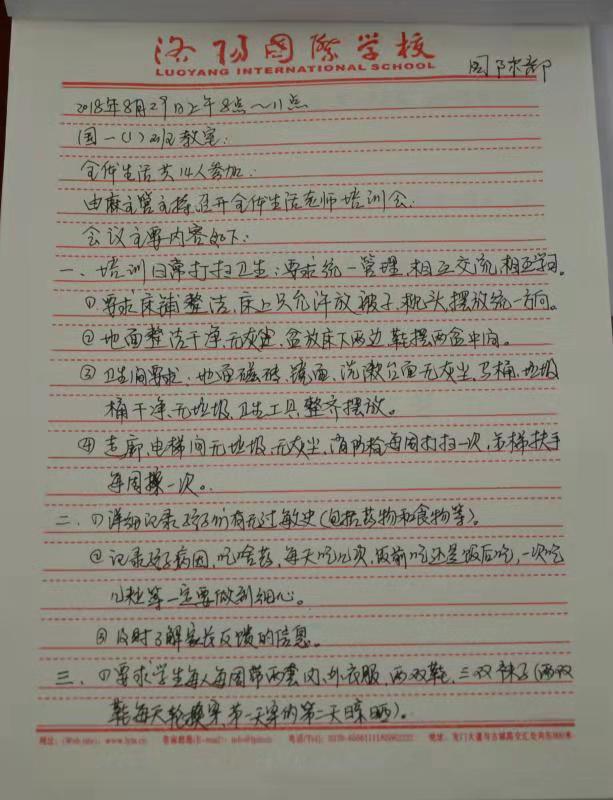 洛阳国際学校
LUOYANG INTERNATIONAL SCHOOL
2018年8月29日上午8点~11点
国一(1)班教室:
全体生活共14人参加.
由麻主管主持召开全体生活老师培训会.
会议主要内容如下:
一、培训日常打扫卫生:要求统一管理,相互交流,相互学习。
①要求床铺整洁,床上只允许放被子,枕头,摆放统一方向。
②地面整洁干净,无灰尘,盆放床下两边,鞋摆两盆中间。
③卫生间要求:地面磁砖,镜面,洗漱台面无灰尘,马桶,垃圾
桶干净,无垃圾,卫生工具整齐摆放。
④走廊,电梯间无垃圾,无灰尘,消防栓每周打扫一次,步梯扶手
每周擦一次。
二、①详细记录孩子们有无过敏史(包括药物和食物等)。
②记录孩子病因,吃啥药,每天吃几次,饭前吃还是饭后吃,一次吃
几粒等一定要做到细心。
③及时了解家长反馈的信息。
三、①要求学生每人每周带两套内,外衣服,两双鞋,三双袜子(两双
鞋每天轮换穿,第一天穿的第二天晾晒)。
网址:(Web site):www.lyis.cn 咨询邮箱(E-mail): 电话(Tel): 地址:龙门大道与古城路交汇处向东800米